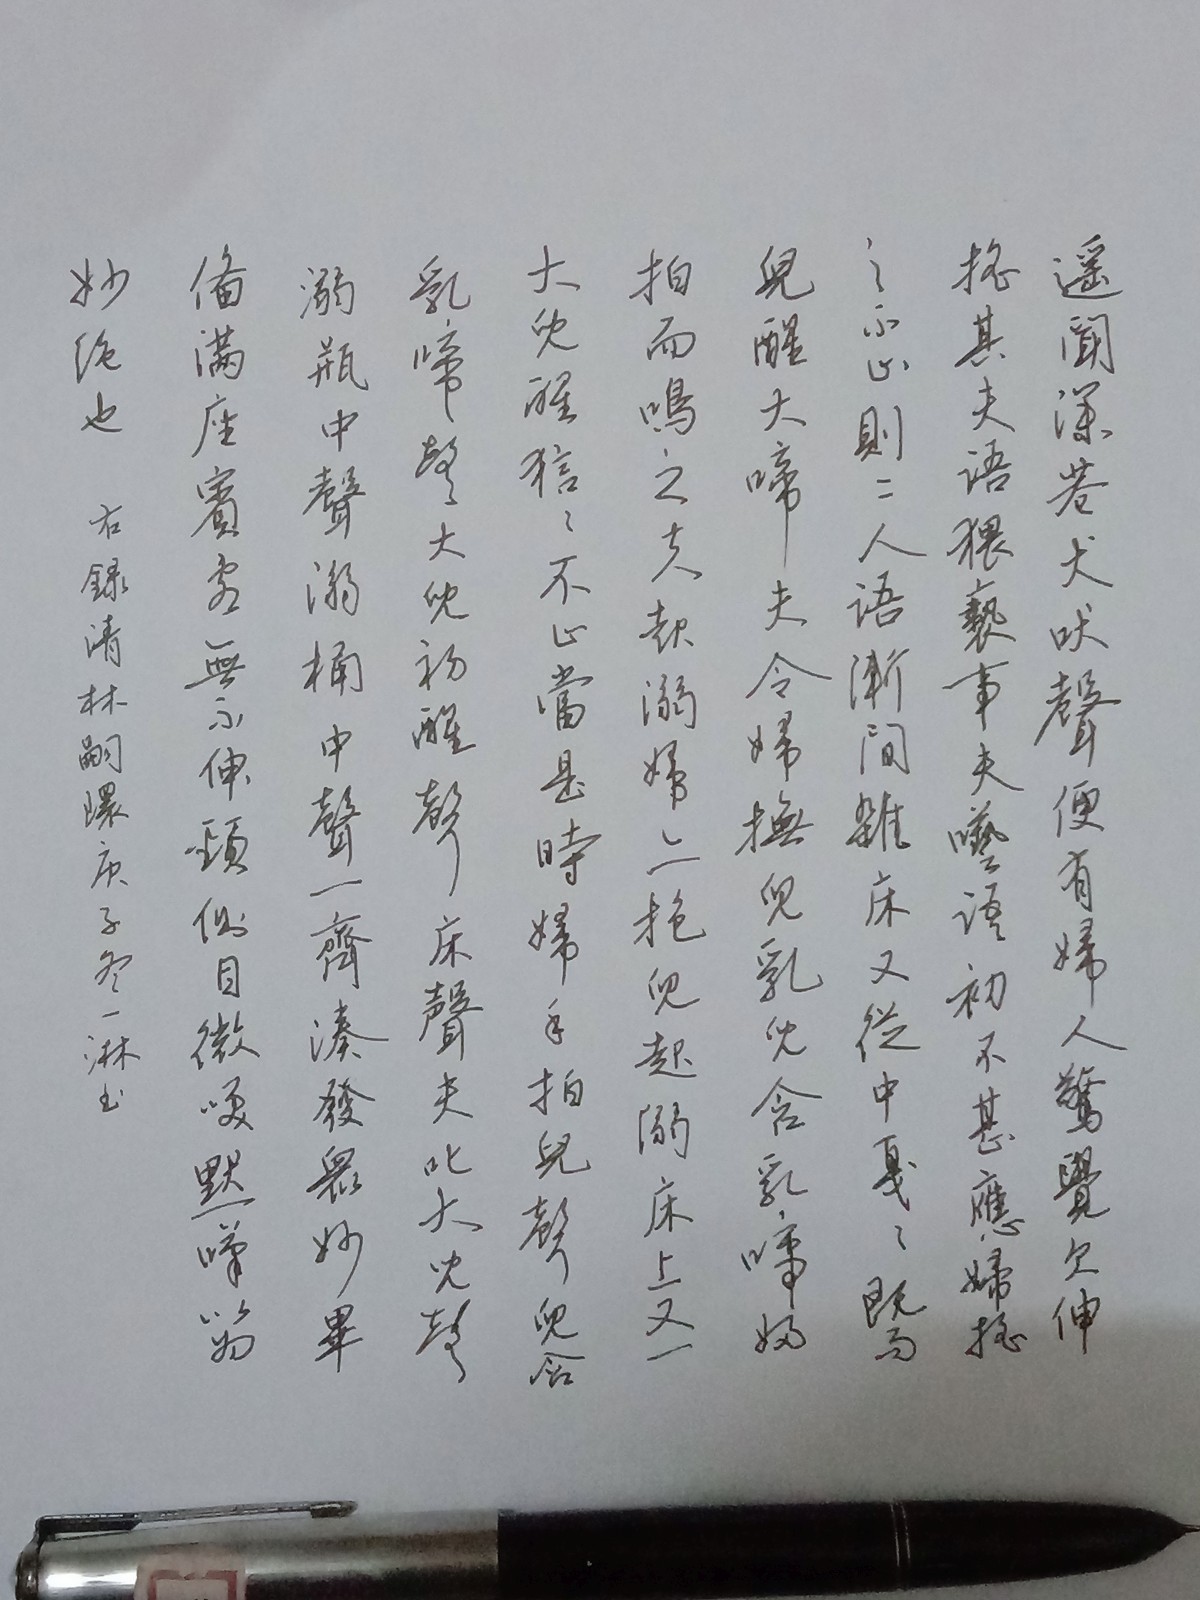 遥聞深巷犬吠聲便有婦人驚覺欠伸
搖其夫語猥褻事夫囈語初不甚應婦搖
之不止則二人語漸間雜床又從中戛〻既而
兒醒大啼夫令婦撫兒乳兒含乳啼婦
拍而嗚之夫起溺婦亦抱兒起溺床上又一
大兒醒狺〻不止當是時婦手拍兒聲兒含
乳啼聲大兒初醒聲床聲夫叱大兒聲
溺瓶中聲溺桶中聲一齊湊發衆妙畢
備滿座賓客無不伸頸側目微笑默嘆以為
妙絕也
右錄清林嗣環庚子冬一淋書